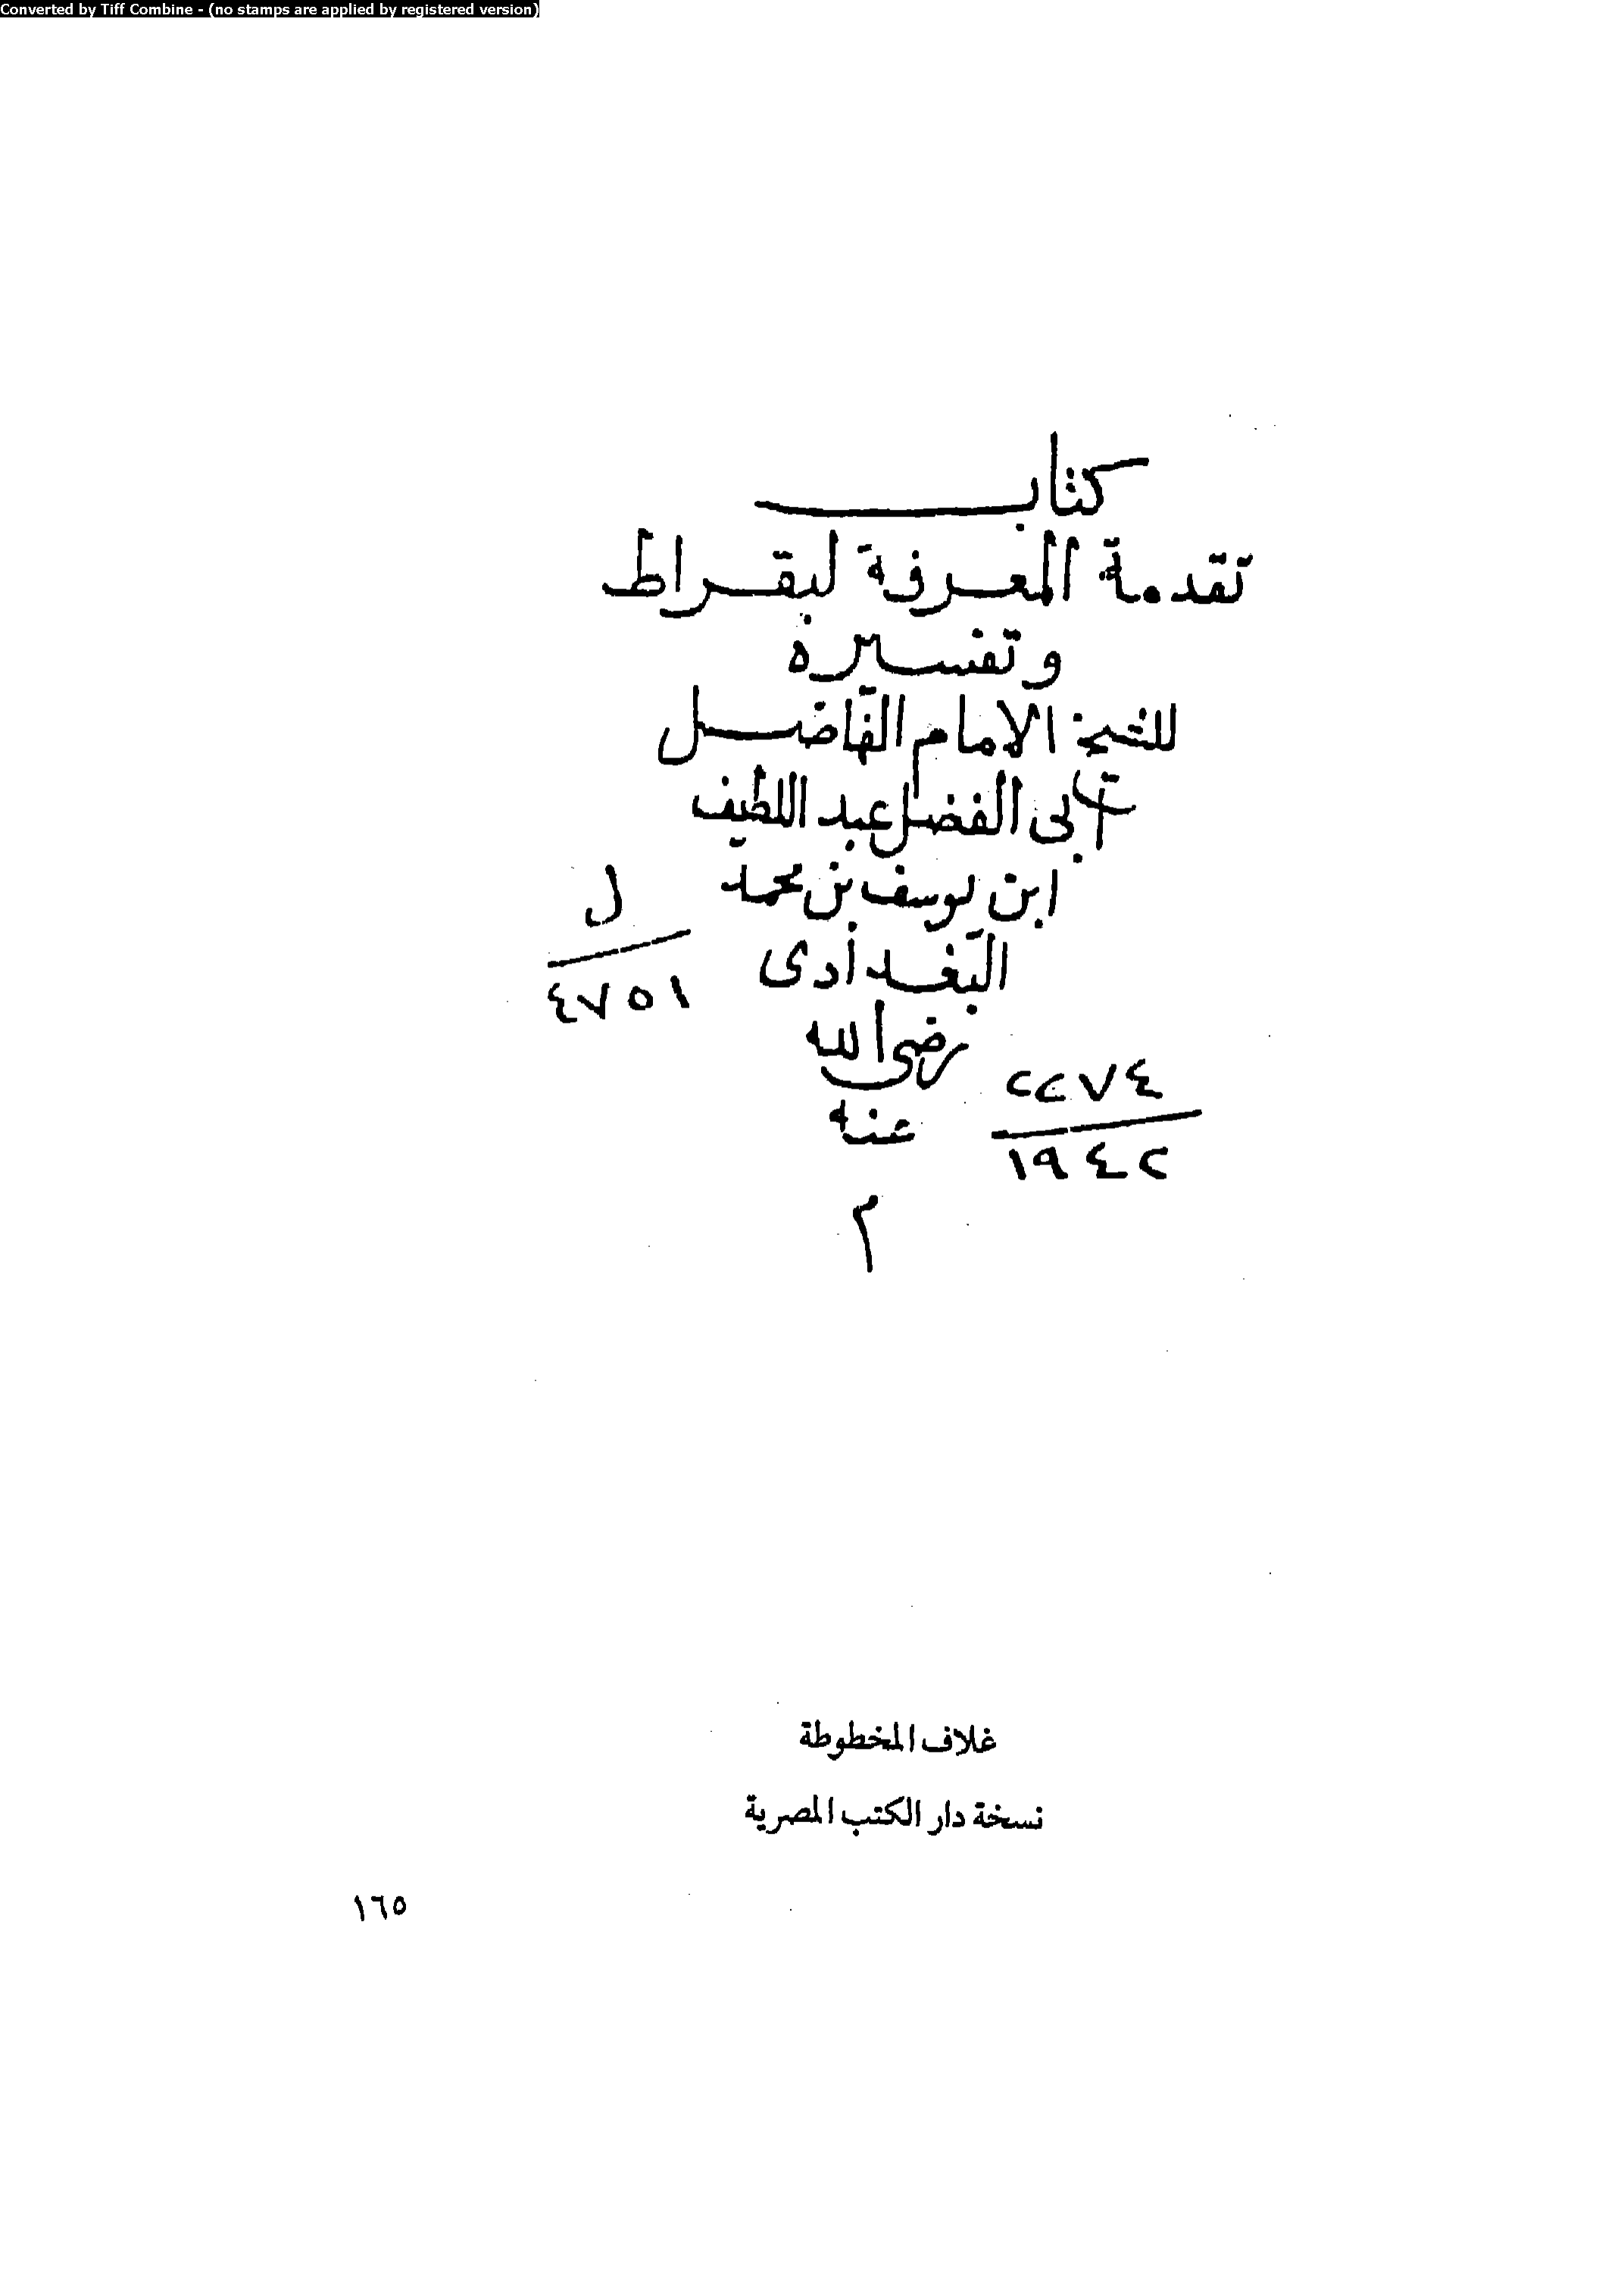 Converted by Tiff Combine - (no stamps are applied by registered version)
كتاب
تقدمة المعرفة لبقراط
وتفسيره
للشيخ الامام الفاضل
ابى الفضل عبد اللطيف
ابن يوسف بن محمد
ل
البغدادى
٤٧٥١
رضى الله
٢٢٧٤
عنه
١٩٤٢
٢
غلاف المخطوطة
نسخة دار الكتب المصرية
١٦٥